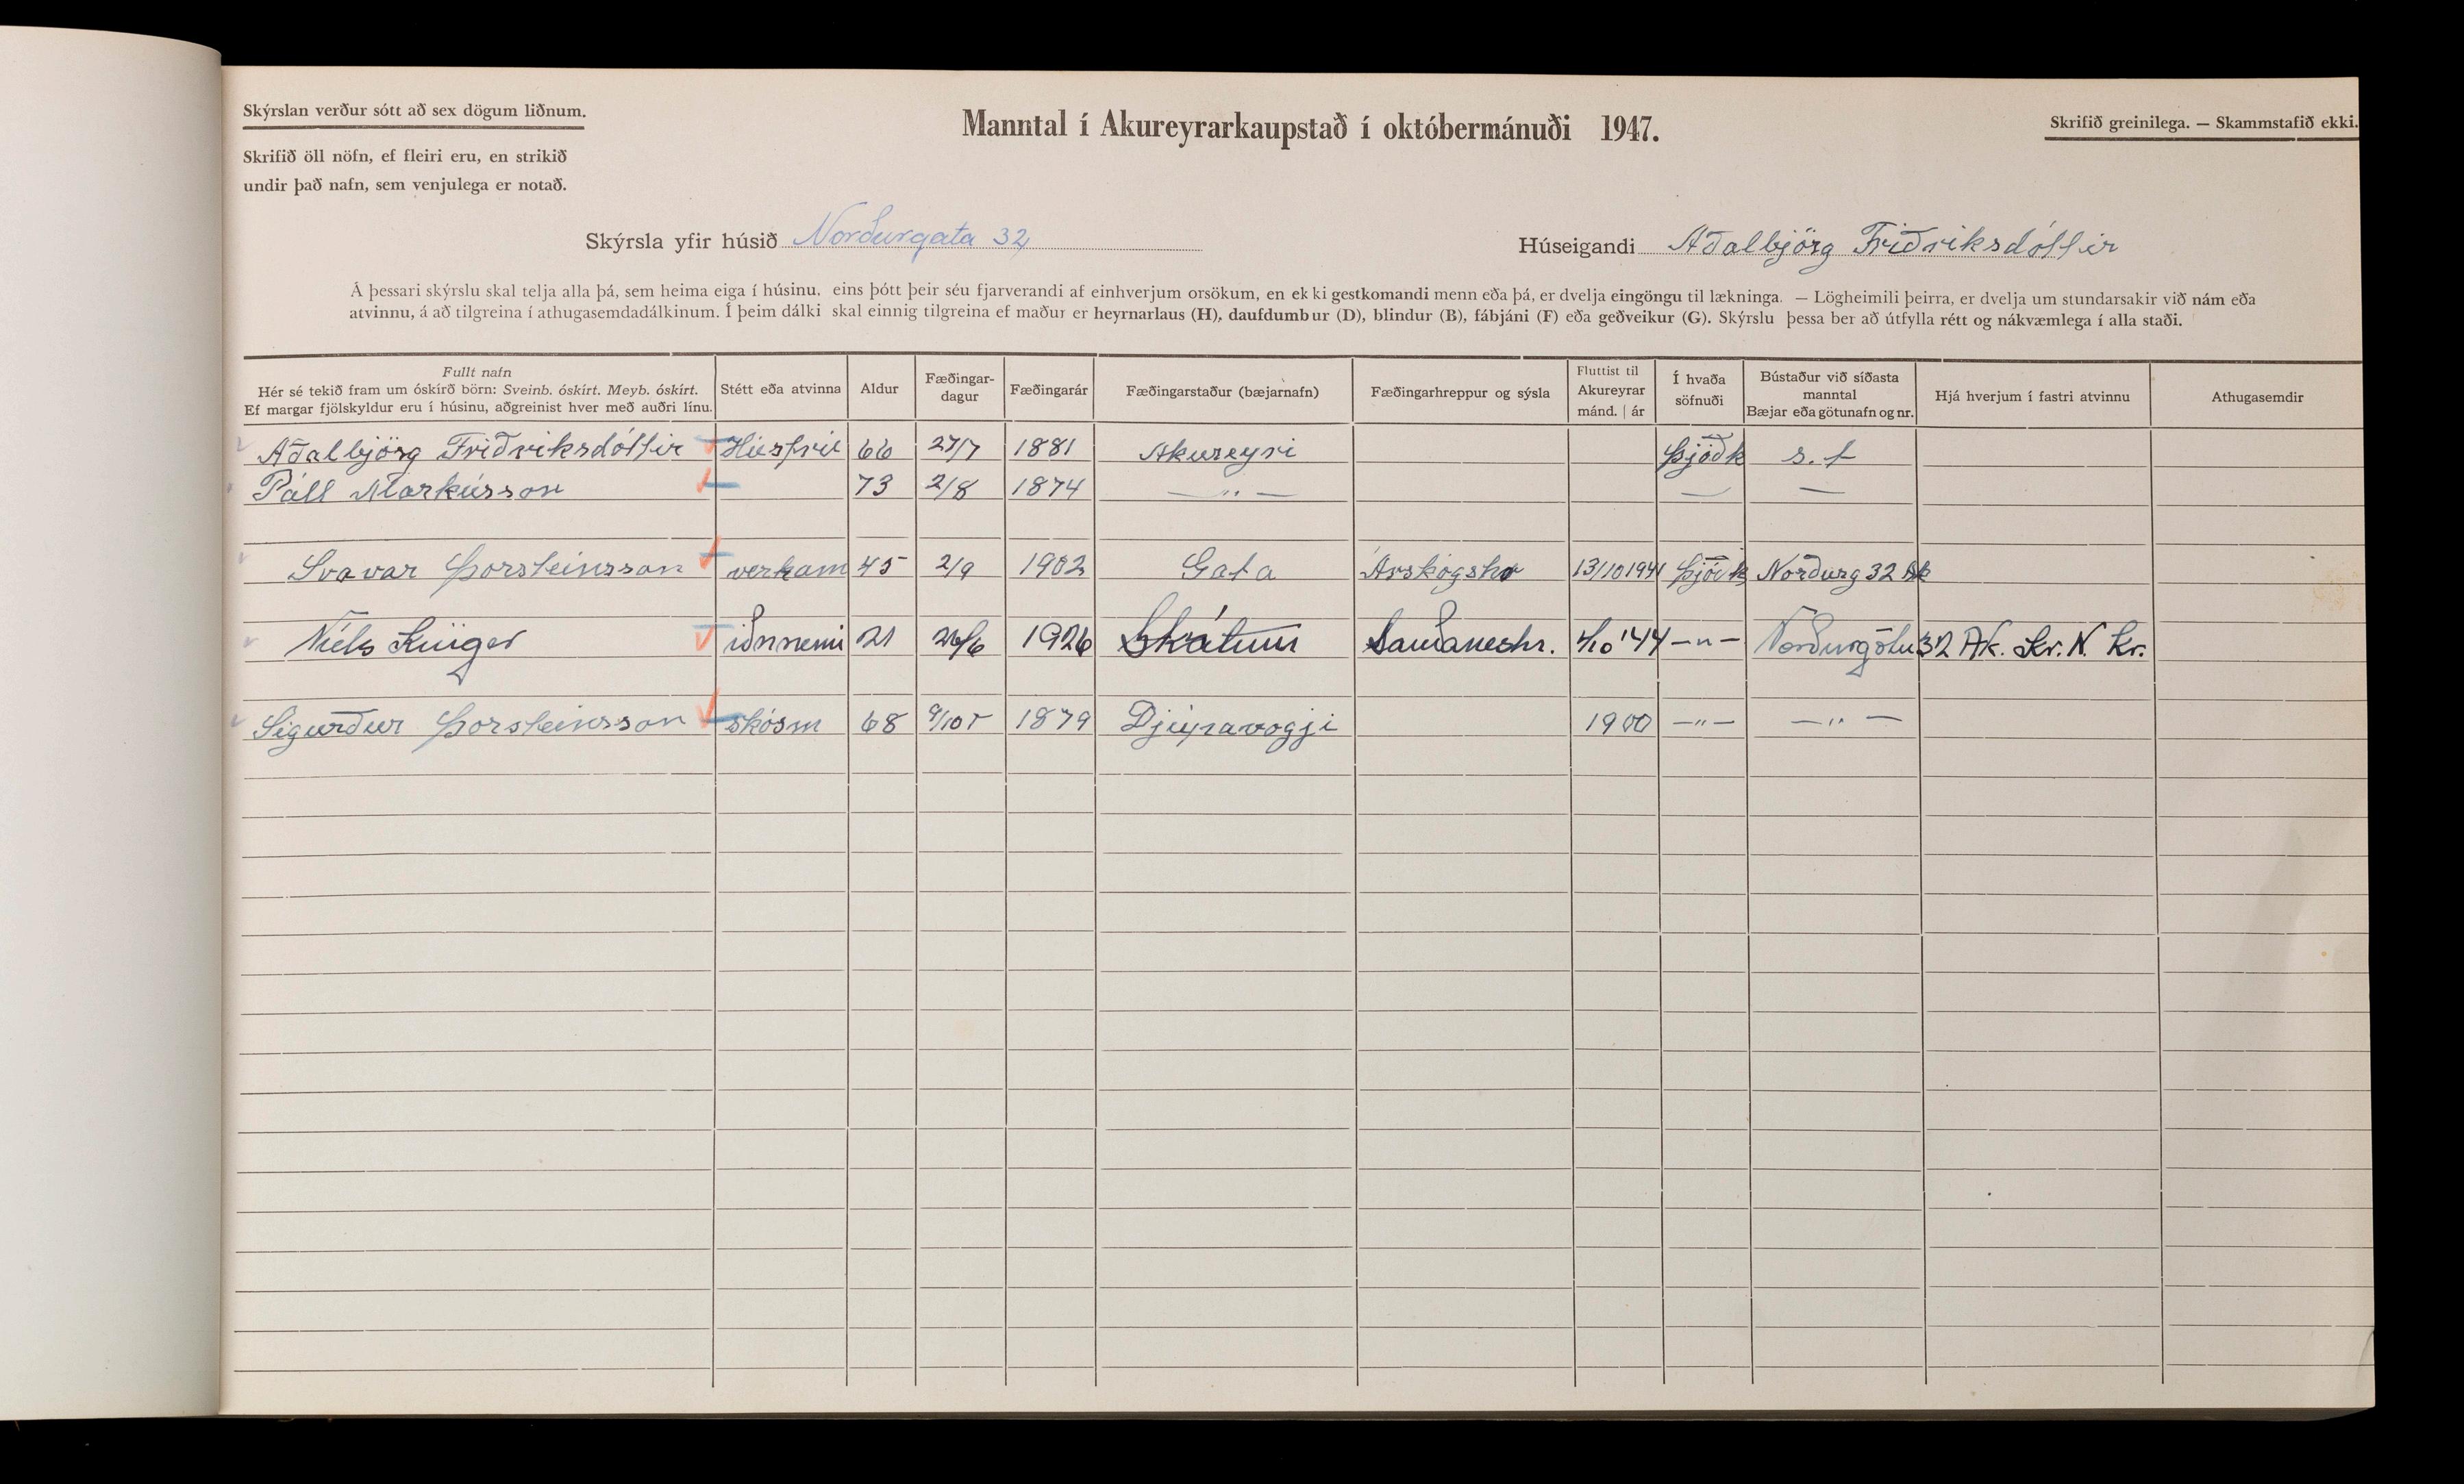 Skýrslan verður sótt að sex dögum liðnum.
Manntal í Akureyrarkaupstað í októbermánuði 1947.
Skrifið greinilega. — Skammstafið ekki.
Skrifið öll nöfn, ef fleiri eru, en strikið
undir það nafn, sem venjulega er notað.
Skýrsla yfir húsið Norðurgata 32
Húseigandi Aðalbjörg Friðriksdóttir
Á þessari skýrslu skal telja alla þá, sem heima eiga í húsinu, eins þótt þeir séu fjarverandi af einhverjum orsökum, en ekki gestkomandi menn eða þá, er dvelja eingöngu til lækninga. — Lögheimili þeirra, er dvelja um stundarsakir við nám eða
atvinnu, á að tilgreina í athugasemdadálkinum. Í þeim dálki skal einnig tilgreina ef maður er heyrnarlaus (H), daufdumbur (D), blindur (B), fábjáni (F) eða geðveikur (G). Skýrslu þessa ber að útfylla rétt og nákvæmlega í alla staði.
Fullt nafn
Hér sé tekið fram um óskírð börn: Sveinb. óskírt. Meyb. óskírt.
Ef margar fjölskyldur eru í húsinu, aðgreinist hver með auðri línu.
Stétt eða atvinna
Aldur
Fæðingar-
dagur
Fæðingarár
Fæðingarstaður (bæjarnafn)
Fæðingarhreppur og sýsla
Fluttist til
Akureyrar
mánd. | ár
Í hvaða
söfnuði
Bústaður við síðasta
manntal
Bæjar eða götunafn og nr.
Hjá hverjum í fastri atvinnu
Athugasemdir
Aðalbjörg Friðriksdóttir Húsfrú 66 27/7 1881 Akureyri Þjóðk s. t
Páll Markússon 73 2/8 1874 — " — — —
Svavar Þorsteinsson verkam 45 2/9 1902 Gata Árskógshr 13/10 1941 Þjóðk Norðurg 32 Ak
Níels Krüger iðnnemi 21 26/6 1926 Skálum Sauðaneshr. 4/10 '44 — " — Norðurgötu 32 Ak. Kr. N. Kr.
Sigurður Þorsteinsson skósm 68 1879 Djúpavogji 1900 — " — — " —